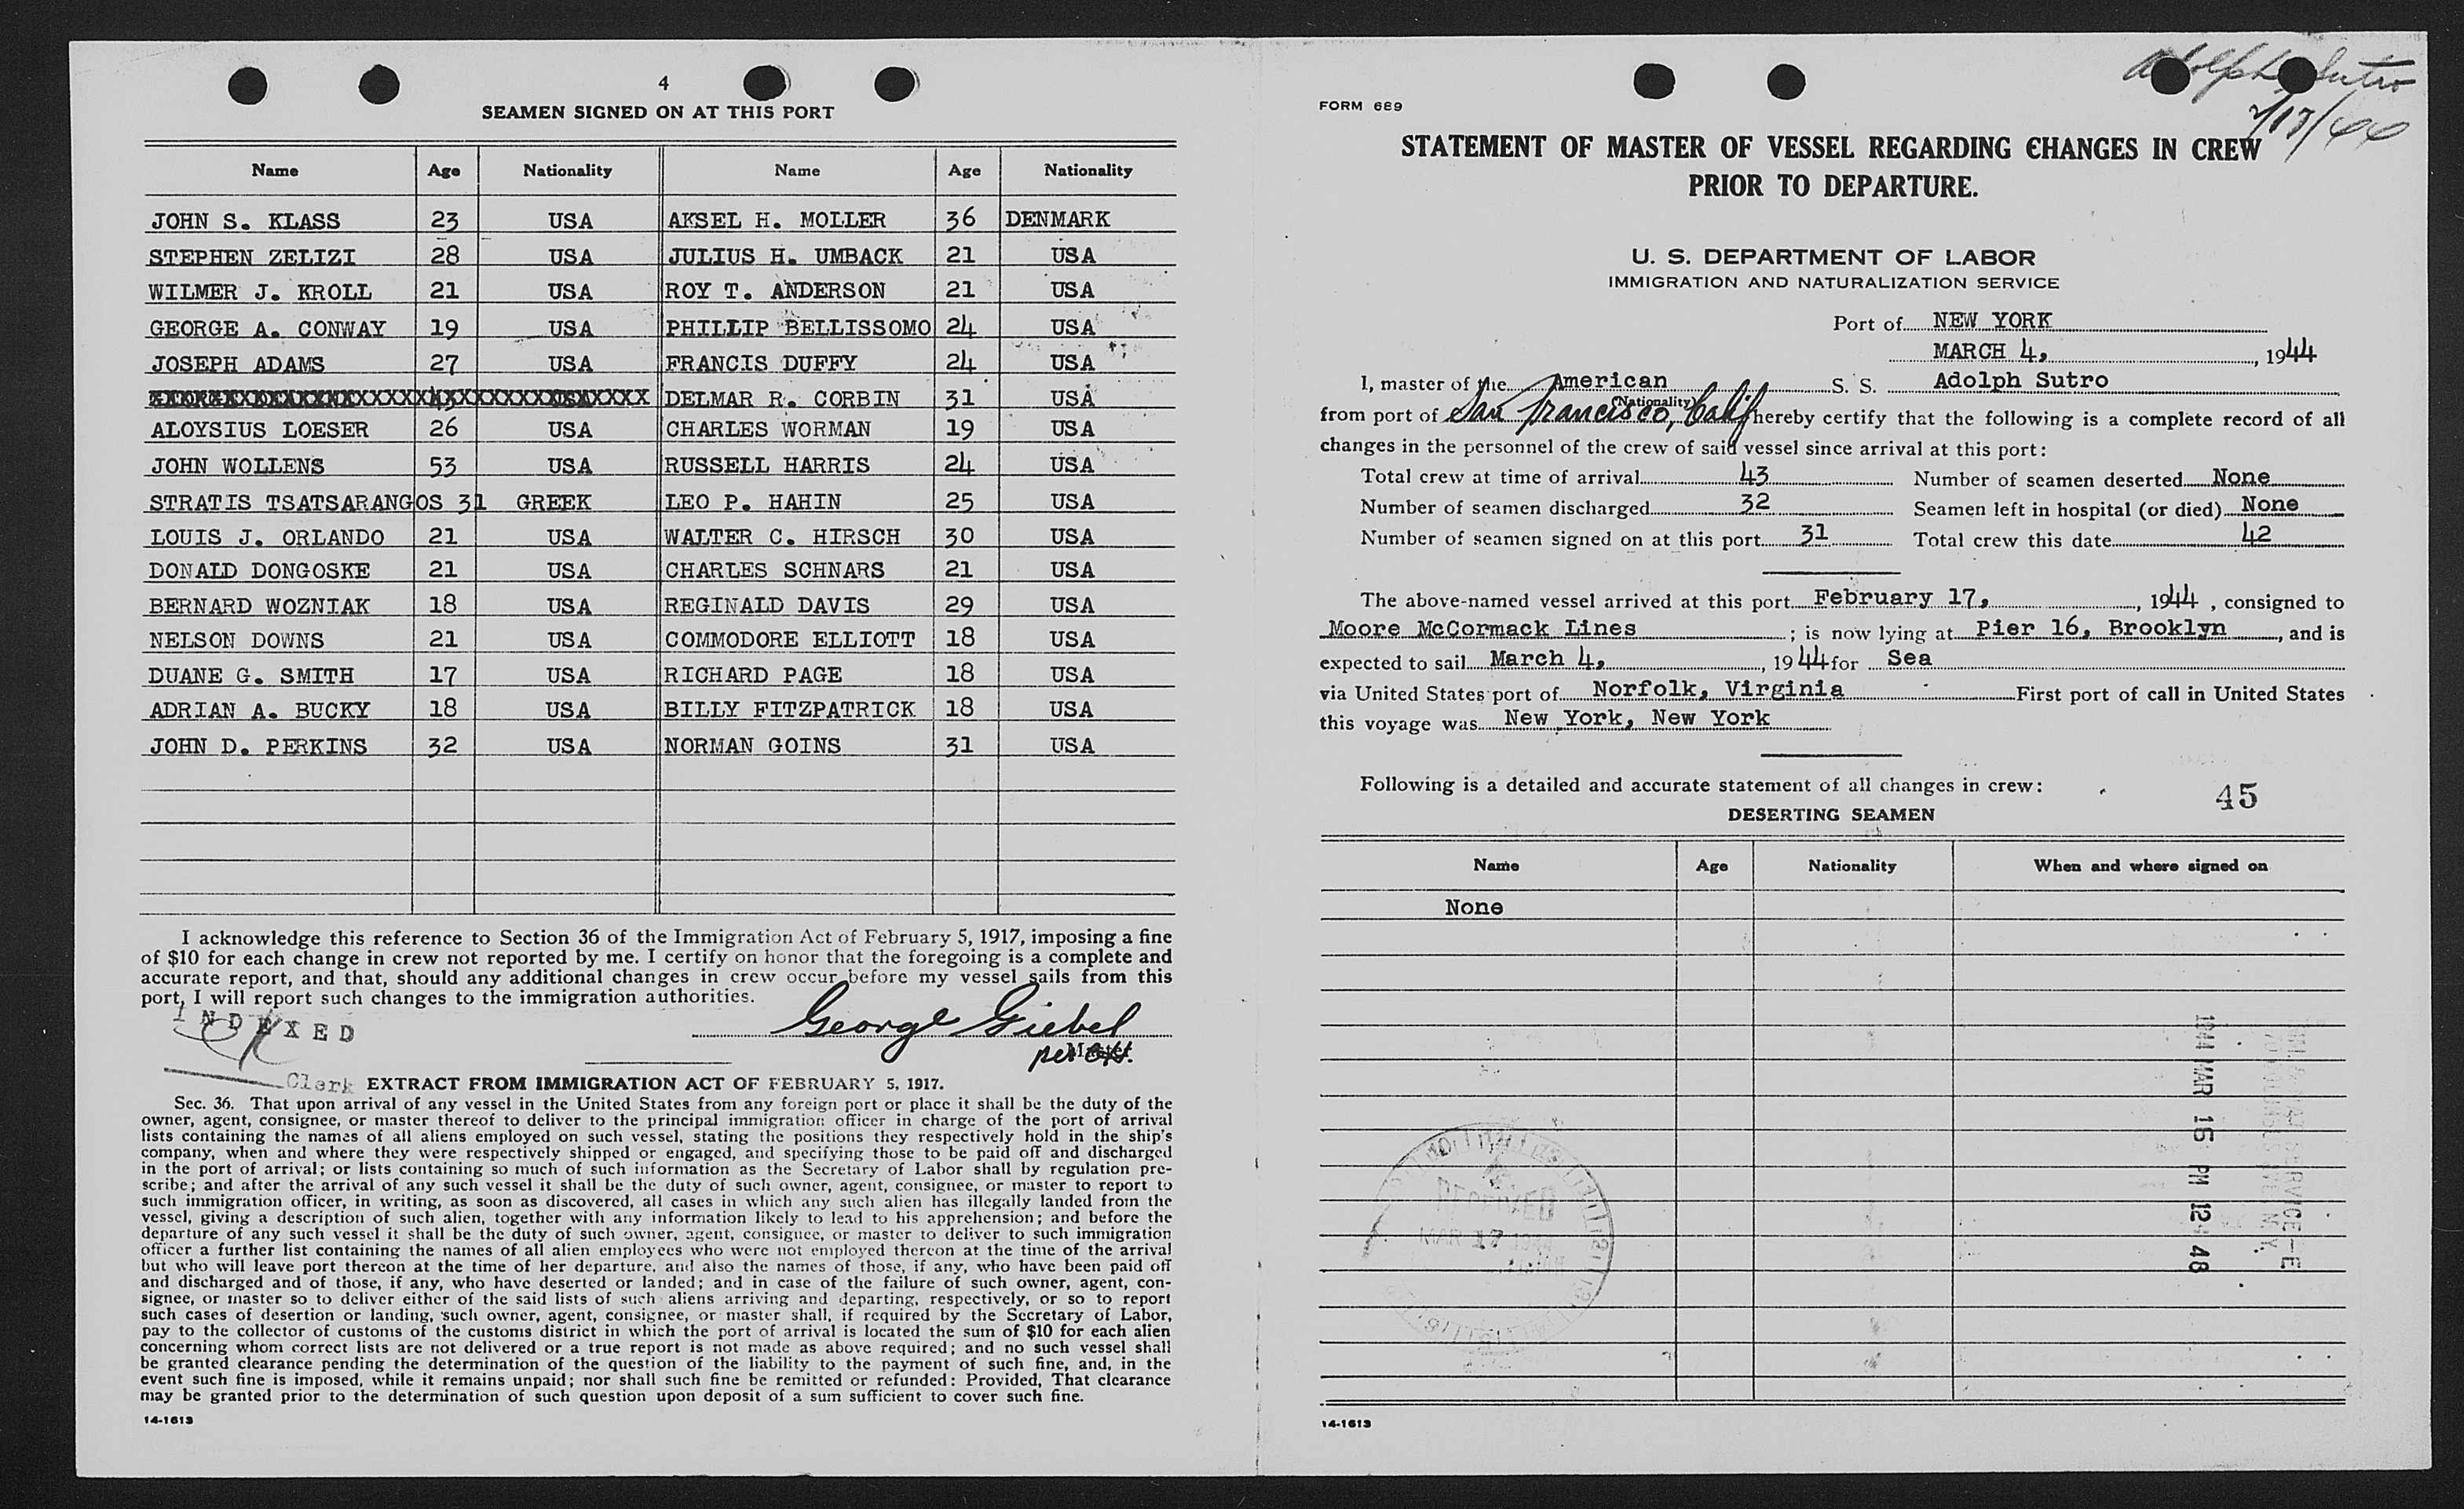 4
SEAMEN SIGNED ON AT THIS PORT
Name Age Nationality Name Age Nationality
JOHN S. KLASS 23 USA AKSEL H. MOLLER 36 DENMARK
STEPHEN ZELIZI 28 USA JULIUS H. UMBACK 21 USA
WILMER J. KROLL 21 USA ROY T. ANDERSON 21 USA
GEORGE A. CONWAY 19 USA PHILLIP BELLISSOMO 24 USA
JOSEPH ADAMS 27 USA FRANCIS DUFFY 24 USA
DELMAR R. CORBIN 31 USA
ALOYSIUS LOESER 26 USA CHARLES WORMAN 19 USA
JOHN WOLLENS 53 USA RUSSELL HARRIS 24 USA
STRATIS TSATSARANGOS 31 GREEK LEO P. HAHIN 25 USA
LOUIS J. ORLANDO 21 USA WALTER C. HIRSCH 30 USA
DONALD DONGOSKE 21 USA CHARLES SCHNARS 21 USA
BERNARD WOZNIAK 18 USA REGINALD DAVIS 29 USA
NELSON DOWNS 21 USA COMMODORE ELLIOTT 18 USA
DUANE G. SMITH 17 USA RICHARD PAGE 18 USA
ADRIAN A. BUCKY 18 USA BILLY FITZPATRICK 18 USA
JOHN D. PERKINS 32 USA NORMAN GOINS 31 USA
I acknowledge this reference to Section 36 of the Immigration Act of February 5, 1917, imposing a fine
of $10 for each change in crew not reported by me. I certify on honor that the foregoing is a complete and
accurate report, and that, should any additional changes in crew occur before my vessel sails from this
port, I will report such changes to the immigration authorities.
INDEXED
George Giebel
Master.
per
Clerk
EXTRACT FROM IMMIGRATION ACT OF FEBRUARY 5, 1917.
Sec. 36. That upon arrival of any vessel in the United States from any foreign port or place it shall be the duty of the
owner, agent, consignee, or master thereof to deliver to the principal immigration officer in charge of the port of arrival
lists containing the names of all aliens employed on such vessel, stating the positions they respectively hold in the ship's
company, when and where they were respectively shipped or engaged, and specifying those to be paid off and discharged
in the port of arrival; or lists containing so much of such information as the Secretary of Labor shall by regulation pre-
scribe; and after the arrival of any such vessel it shall be the duty of such owner, agent, consignee, or master to report to
such immigration officer, in writing, as soon as discovered, all cases in which any such alien has illegally landed from the
vessel, giving a description of such alien, together with any information likely to lead to his apprehension; and before the
departure of any such vessel it shall be the duty of such owner, agent, consignee, or master to deliver to such immigration
officer a further list containing the names of all alien employees who were not employed thereon at the time of the arrival
but who will leave port thereon at the time of her departure, and also the names of those, if any, who have been paid off
and discharged and of those, if any, who have deserted or landed; and in case of the failure of such owner, agent, con-
signee, or master so to deliver either of the said lists of such aliens arriving and departing, respectively, or so to report
such cases of desertion or landing, such owner, agent, consignee, or master shall, if required by the Secretary of Labor,
pay to the collector of customs of the customs district in which the port of arrival is located the sum of $10 for each alien
concerning whom correct lists are not delivered or a true report is not made as above required; and no such vessel shall
be granted clearance pending the determination of the question of the liability to the payment of such fine, and, in the
event such fine is imposed, while it remains unpaid; nor shall such fine be remitted or refunded: Provided, That clearance
may be granted prior to the determination of such question upon deposit of a sum sufficient to cover such fine.
14-1613
Adolph Sutro
2/17/44
FORM 689
STATEMENT OF MASTER OF VESSEL REGARDING CHANGES IN CREW
PRIOR TO DEPARTURE.
U. S. DEPARTMENT OF LABOR
IMMIGRATION AND NATURALIZATION SERVICE
Port of NEW YORK
MARCH 4, 1944
I, master of the American S. S. Adolph Sutro
(Nationality)
from port of San Francisco, Calif hereby certify that the following is a complete record of all
changes in the personnel of the crew of said vessel since arrival at this port:
Total crew at time of arrival 43 Number of seamen deserted None
Number of seamen discharged 32 Seamen left in hospital (or died) None
Number of seamen signed on at this port 31 Total crew this date 42
The above-named vessel arrived at this port February 17, 1944, consigned to
Moore McCormack Lines; is now lying at Pier 16, Brooklyn, and is
expected to sail March 4, 1944 for Sea
via United States port of Norfolk, Virginia First port of call in United States
this voyage was New York, New York
Following is a detailed and accurate statement of all changes in crew:
45
DESERTING SEAMEN
Name Age Nationality When and where signed on
None
1944 MAR 16 PM 12 48
RECEIVED
MAR 17 1944
14-1613